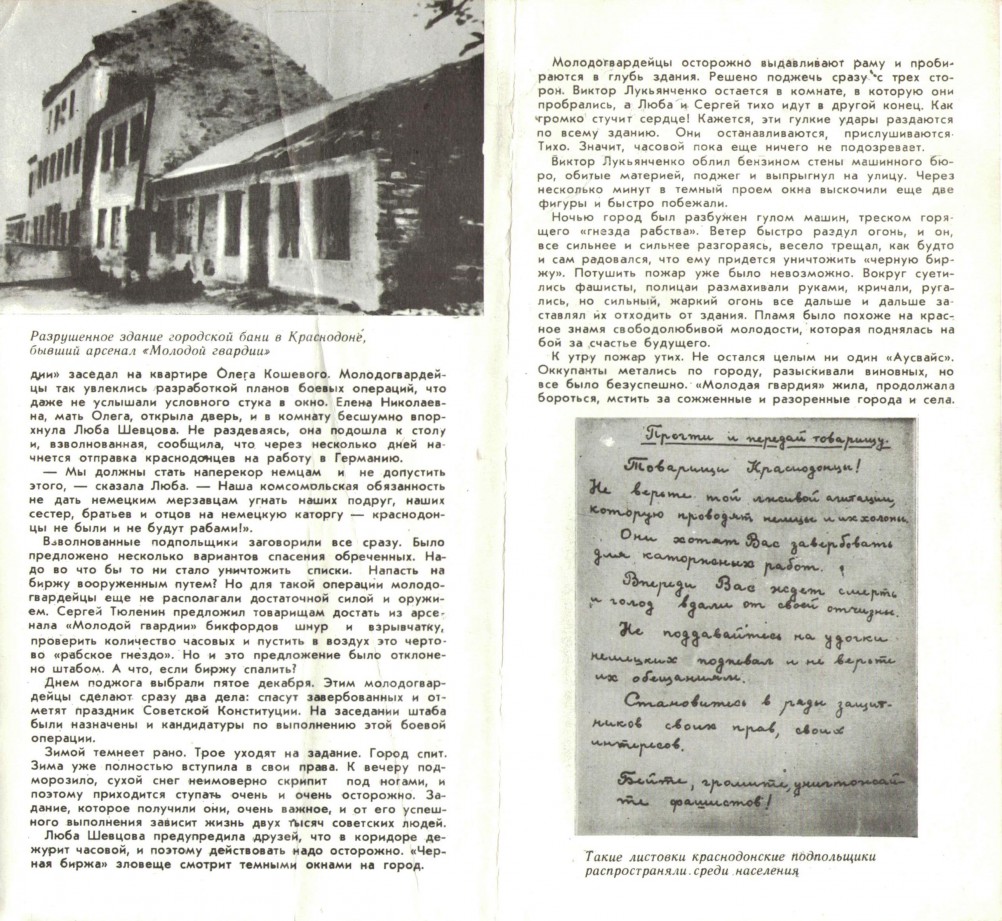 Разрушенное здание городской бани в Краснодоне,
бывший арсенал «Молодой гвардии»
дии» заседал на квартире Олега Кошевого. Молодогвардей-
цы так увлеклись разработкой планов боевых операций, что
даже не услышали условного стука в окно. Елена Николаев-
на, мать Олега, открыла дверь, и в комнату бесшумно впор-
хнула Люба Шевцова. Не раздеваясь, она подошла к столу
и, взволнованная, сообщила, что через несколько дней на-
чнется отправка краснодонцев на работу в Германию.
— Мы должны стать наперекор немцам и не допустить
этого, — сказала Люба. — Наша комсомольская обязанность
не дать немецким мерзавцам угнать наших подруг, наших
сестер, братьев и отцов на немецкую каторгу — краснодон-
цы не были и не будут рабами!».
Взволнованные подпольщики заговорили все сразу. Было
предложено несколько вариантов спасения обреченных. На-
до во что бы то ни стало уничтожить списки. Напасть на
биржу вооруженным путем? Но для такой операции молодо-
гвардейцы еще не располагали достаточной силой и оружи-
ем. Сергей Тюленин предложил товарищам достать из арсе-
нала «Молодой гвардии» бикфордов шнур и взрывчатку,
проверить количество часовых и пустить в воздух это черто-
во «рабское гнездо». Но и это предложение было отклоне-
но штабом. А что, если биржу спалить?
Днем поджога выбрали пятое декабря. Этим молодогвар-
дейцы сделают сразу два дела: спасут завербованных и от-
метят праздник Советской Конституции. На заседании штаба
были назначены и кандидатуры по выполнению этой боевой
операции.
Зимой темнеет рано. Трое уходят на задание. Город спит.
Зима уже полностью вступила в свои права. К вечеру под-
морозило, сухой снег неимоверно скрипит под ногами, и
поэтому приходится ступать очень и очень осторожно. За-
дание, которое получили они, очень важное, и от его успеш-
ного выполнения зависит жизнь двух тысяч советских людей.
Люба Шевцова предупредила друзей, что в коридоре де-
журит часовой, и поэтому действовать надо осторожно. «Чер-
ная биржа» зловеще смотрит темными окнами на город.
Молодогвардейцы осторожно выдавливают раму и проби-
раются в глубь здания. Решено поджечь сразу с трех сто-
рон. Виктор Лукьянченко остается в комнате, в которую они
пробрались, а Люба и Сергей тихо идут в другой конец. Как
громко стучит сердце! Кажется, эти гулкие удары раздаются
по всему зданию. Они останавливаются, прислушиваются.
Тихо. Значит, часовой пока еще ничего не подозревает.
Виктор Лукьянченко облил бензином стены машинного бю-
ро, обитые материей, поджег и выпрыгнул на улицу. Через
несколько минут в темный проем окна выскочили еще две
фигуры и быстро побежали.
Ночью город был разбужен гулом машин, треском горя-
щего «гнезда рабства». Ветер быстро раздул огонь, и он,
все сильнее и сильнее разгораясь, весело трещал, как будто
и сам радовался, что ему придется уничтожить «черную бир-
жу». Потушить пожар уже было невозможно. Вокруг суети-
лись фашисты, полицаи размахивали руками, кричали, руга-
лись, но сильный, жаркий огонь все дальше и дальше за-
ставлял их отходить от здания. Пламя было похоже на крас-
ное знамя свободолюбивой молодости, которая поднялась на
бой за счастье будущего.
К утру пожар утих. Не остался целым ни один «Аусвайс».
Оккупанты метались по городу, разыскивали виновных, но
все было безуспешно. «Молодая гвардия» жила, продолжала
бороться, мстить за сожженные и разоренные города и села.
Прочти и передай товарищу.
Товарищи Краснодонцы!
Не верьте той лисивой агитации,
которую проводят немцы и их холопы
Они хотят Вас завербовать
для каторжных работ.
Впереди Вас ждет смерть
и голод вдали от своей отчизны.
Не поддавайтесь на удочки
немецких подпевал и не верьте
их обещаниям.
Становитесь в ряды защит-
ников своих прав, своих
интересов.
Бейте, громите, уничтожай-
те фашистов!
Такие листовки краснодонские подпольщики
распространяли среди населения